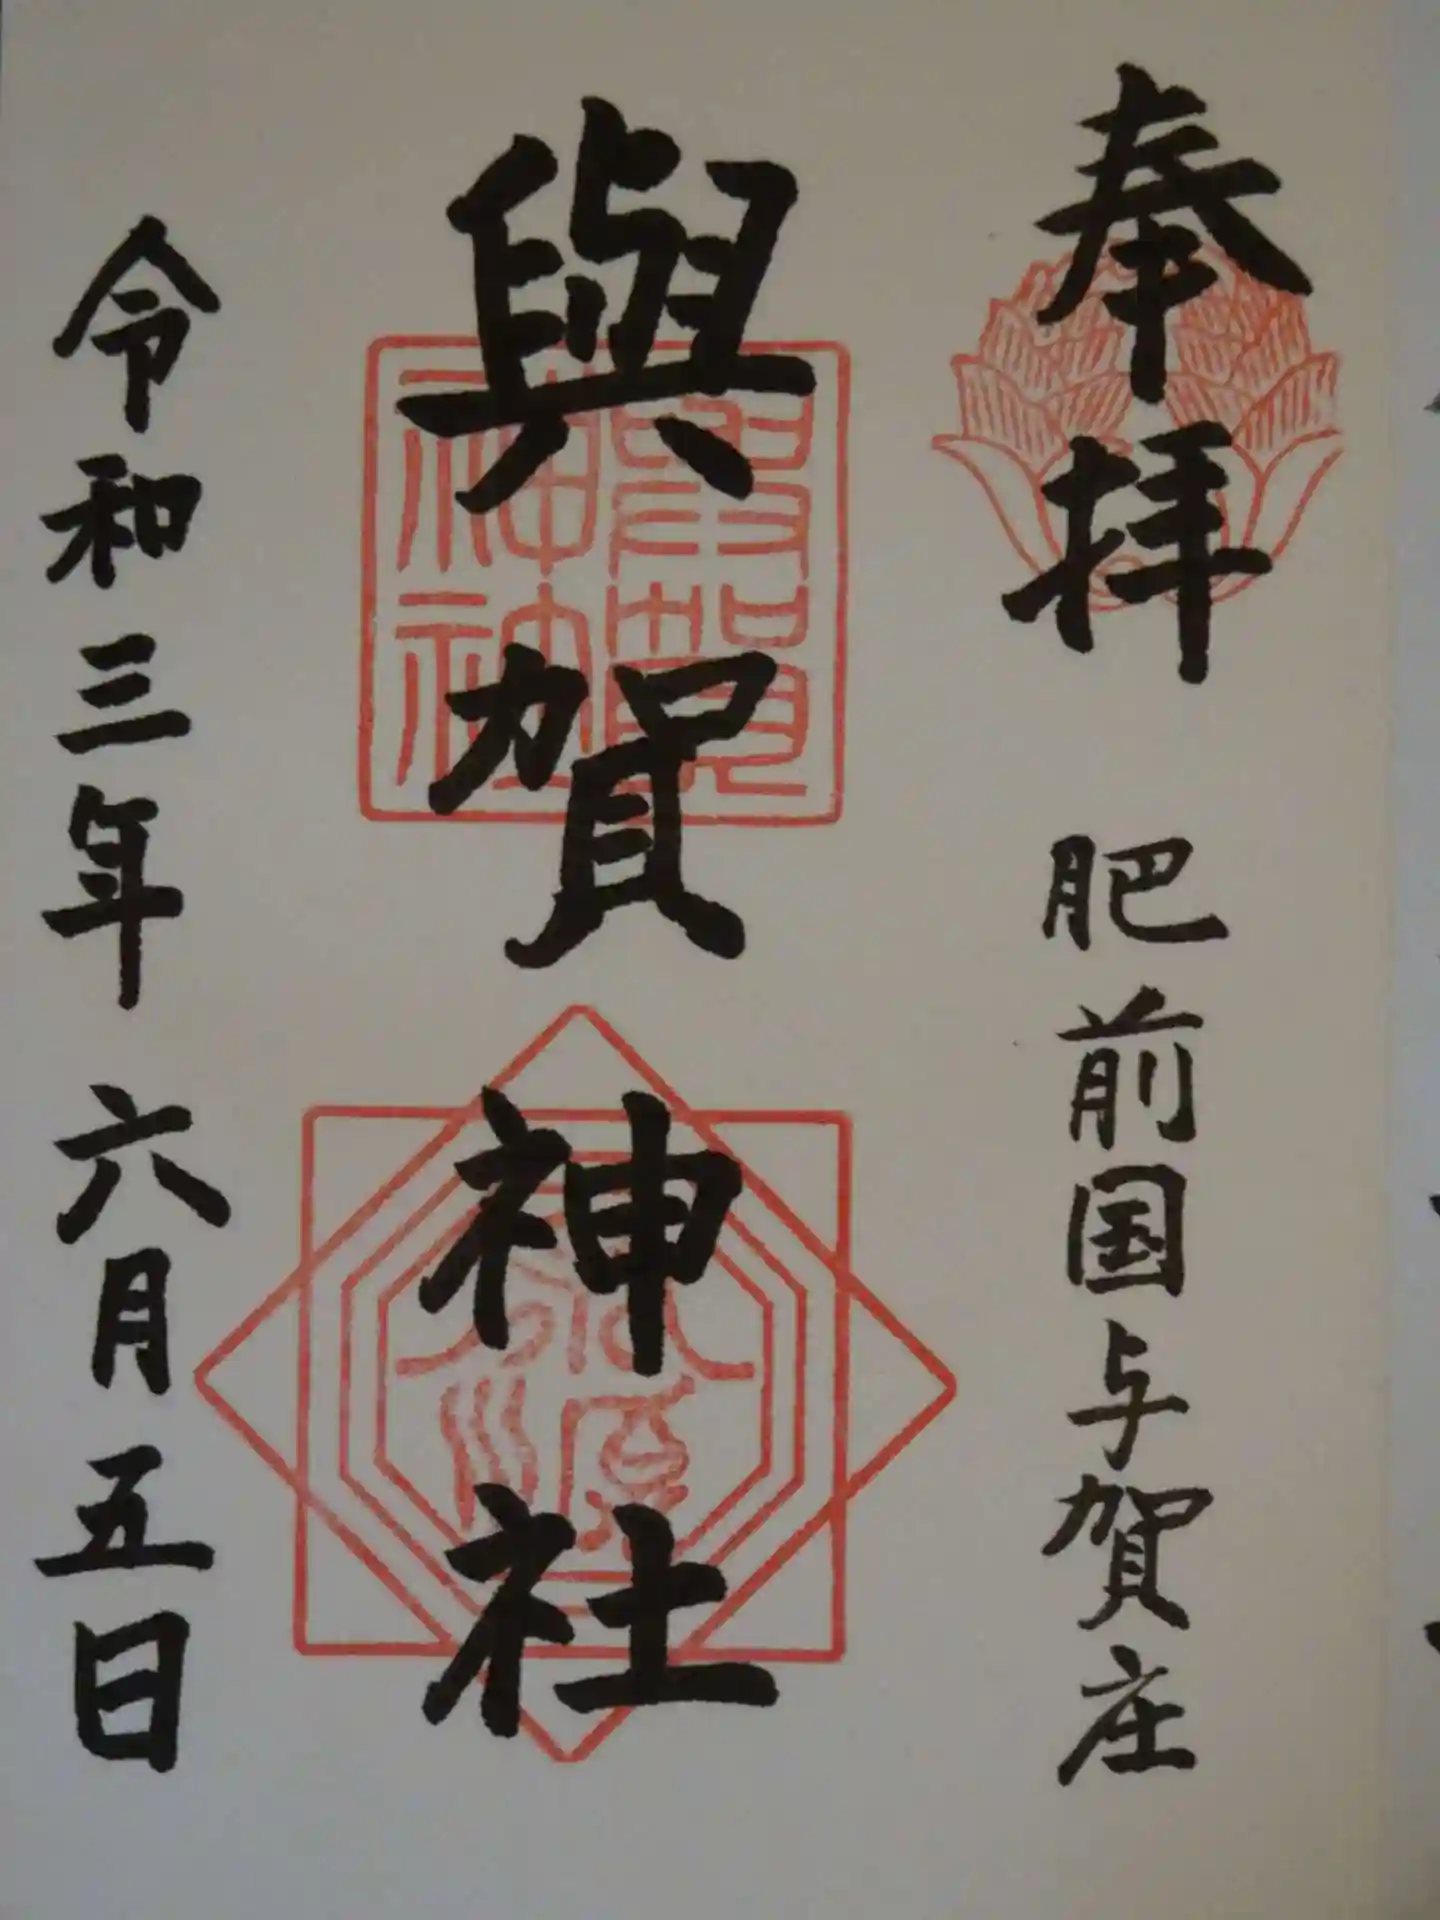 奉拝 肥前国与賀庄
與賀神社
令和三年六月五日
與賀神社